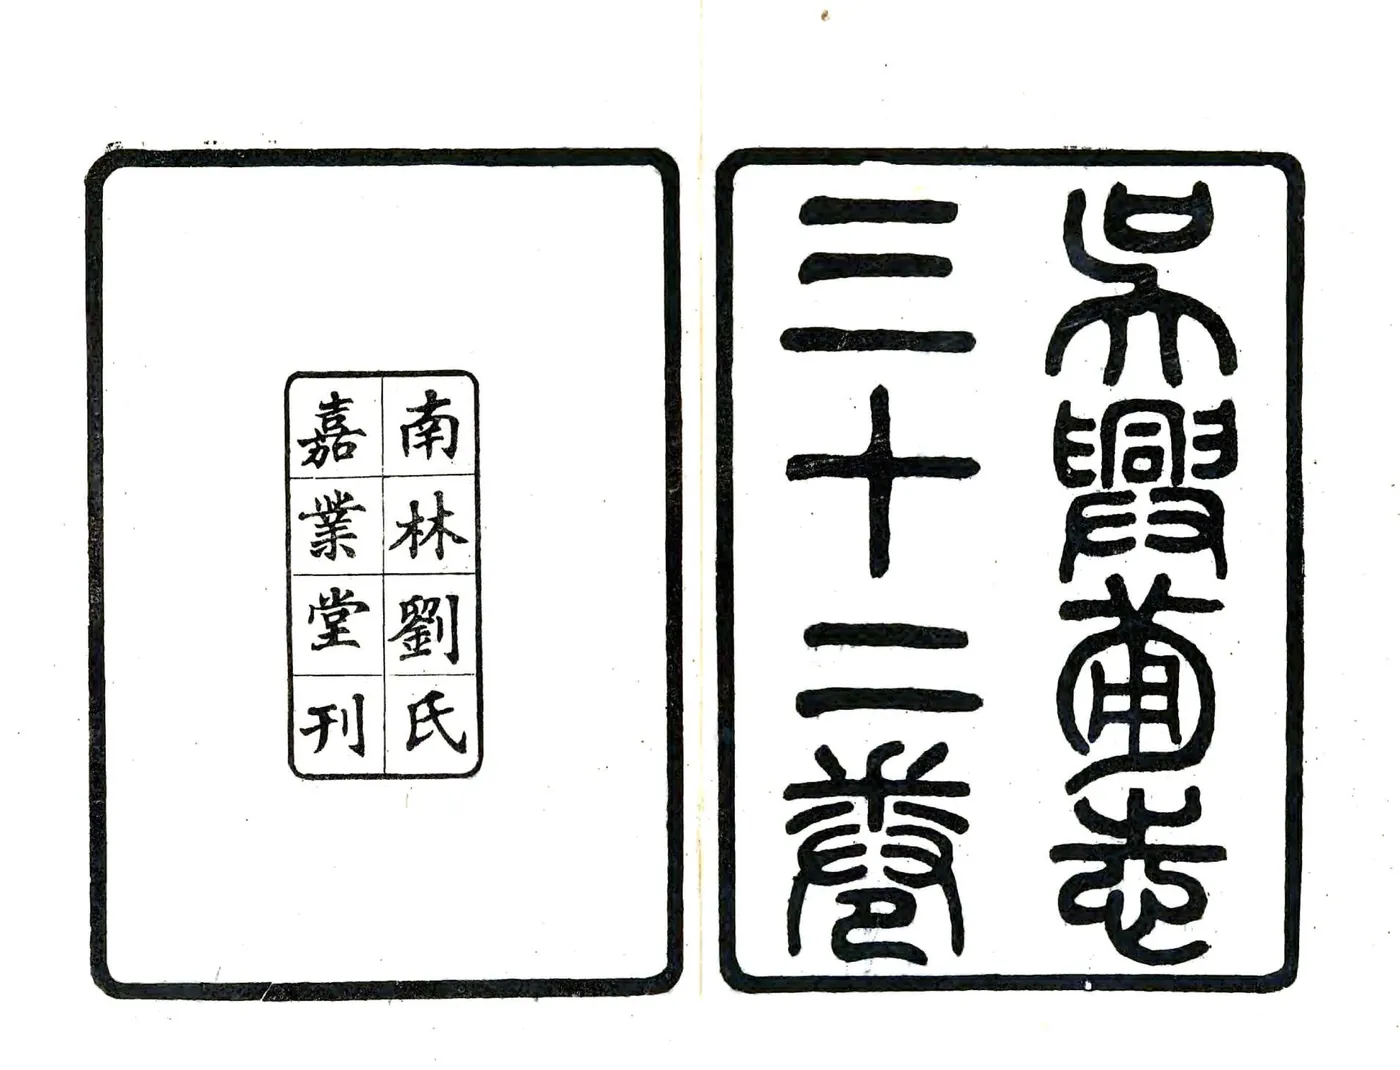 吳興備志
三十二卷
南林劉氏
嘉業堂刊